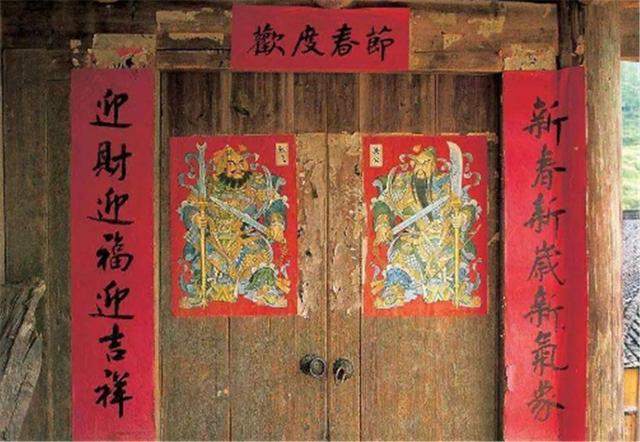 歡度春節
新春新歲新氣象
迎財迎福迎吉祥